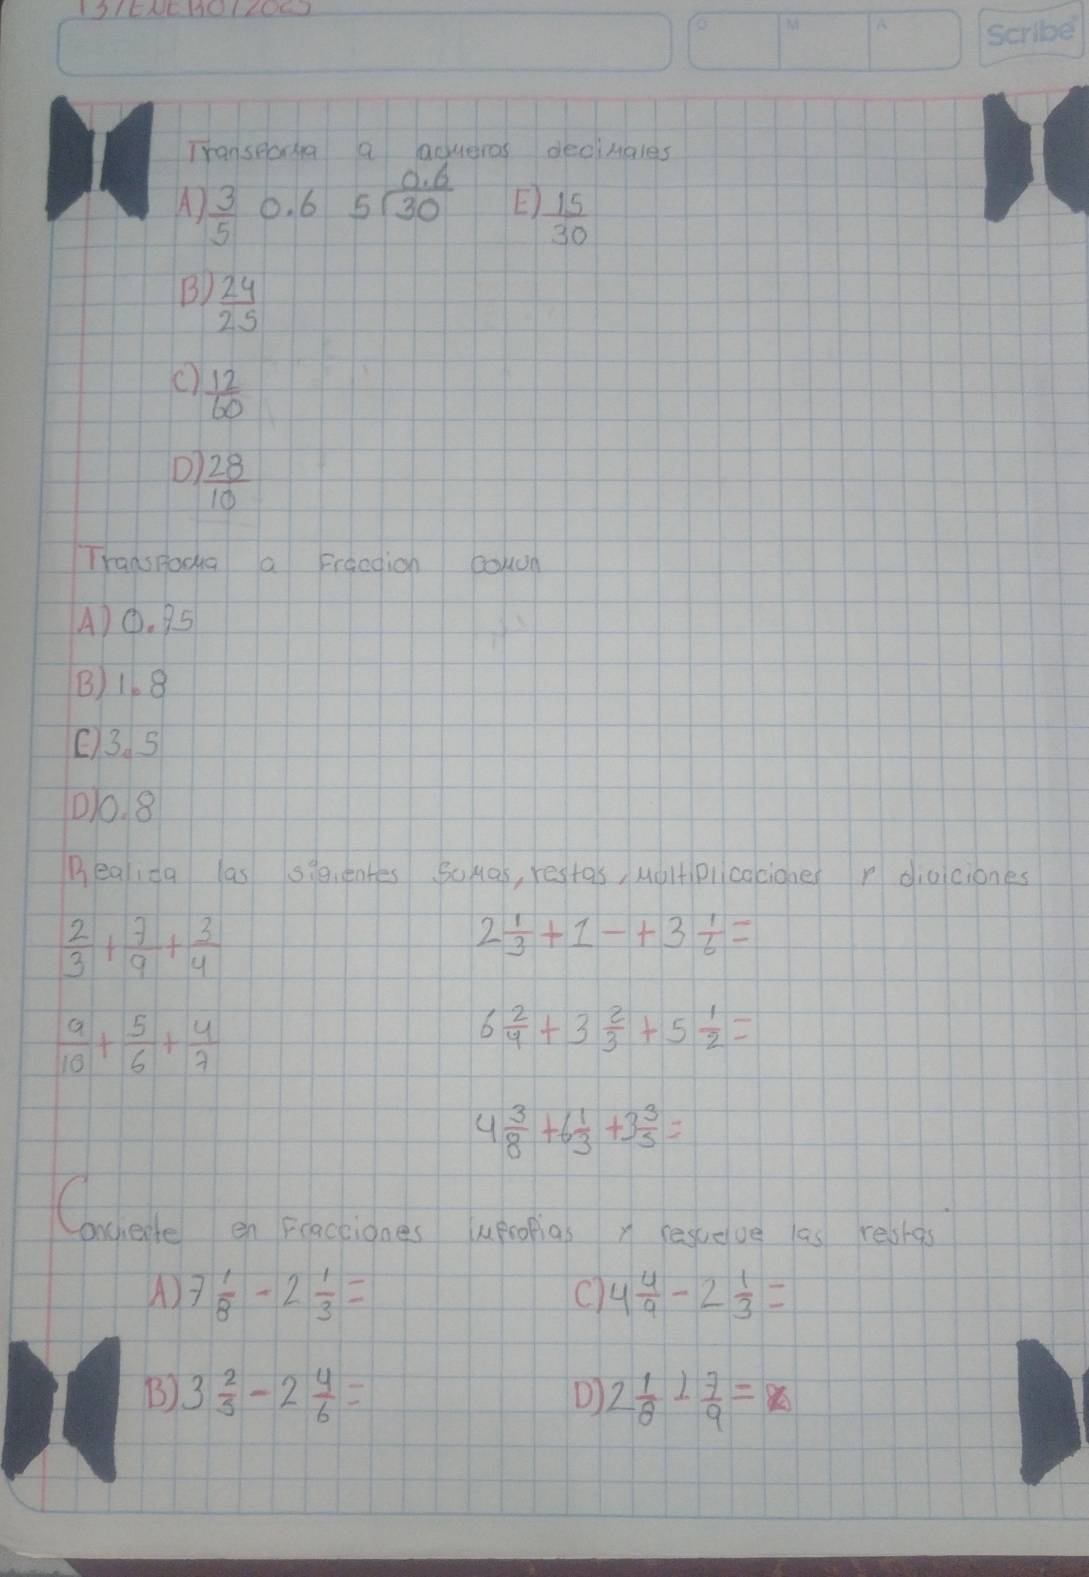 13/ENERO/2025
O M A Scribe
Transforma a números decimales
A) 3/5 0.6 5 30 0.6 E) 15/30
B) 24/25
C) 12/60
D) 28/10
Transforma a Fracción común
A) 0.95
B) 1.8
C) 3.5
D) 0.8
Realiza las siguientes sumas, restas, multiplicaciones y diviciones
2/3 + 7/9 + 3/4 2 1/3 + 1 - + 3 1/6 =
9/10 + 5/6 + 4/7 6 2/4 + 3 2/3 + 5 1/2 =
4 3/8 + 6 1/3 + 3 3/5 =
Convierte en Fracciones impropias y resuelve las restas
A) 7 1/8 - 2 1/3 = C) 4 4/9 - 2 1/3 =
B) 3 2/3 - 2 4/6 = D) 2 1/8 1 7/9 =